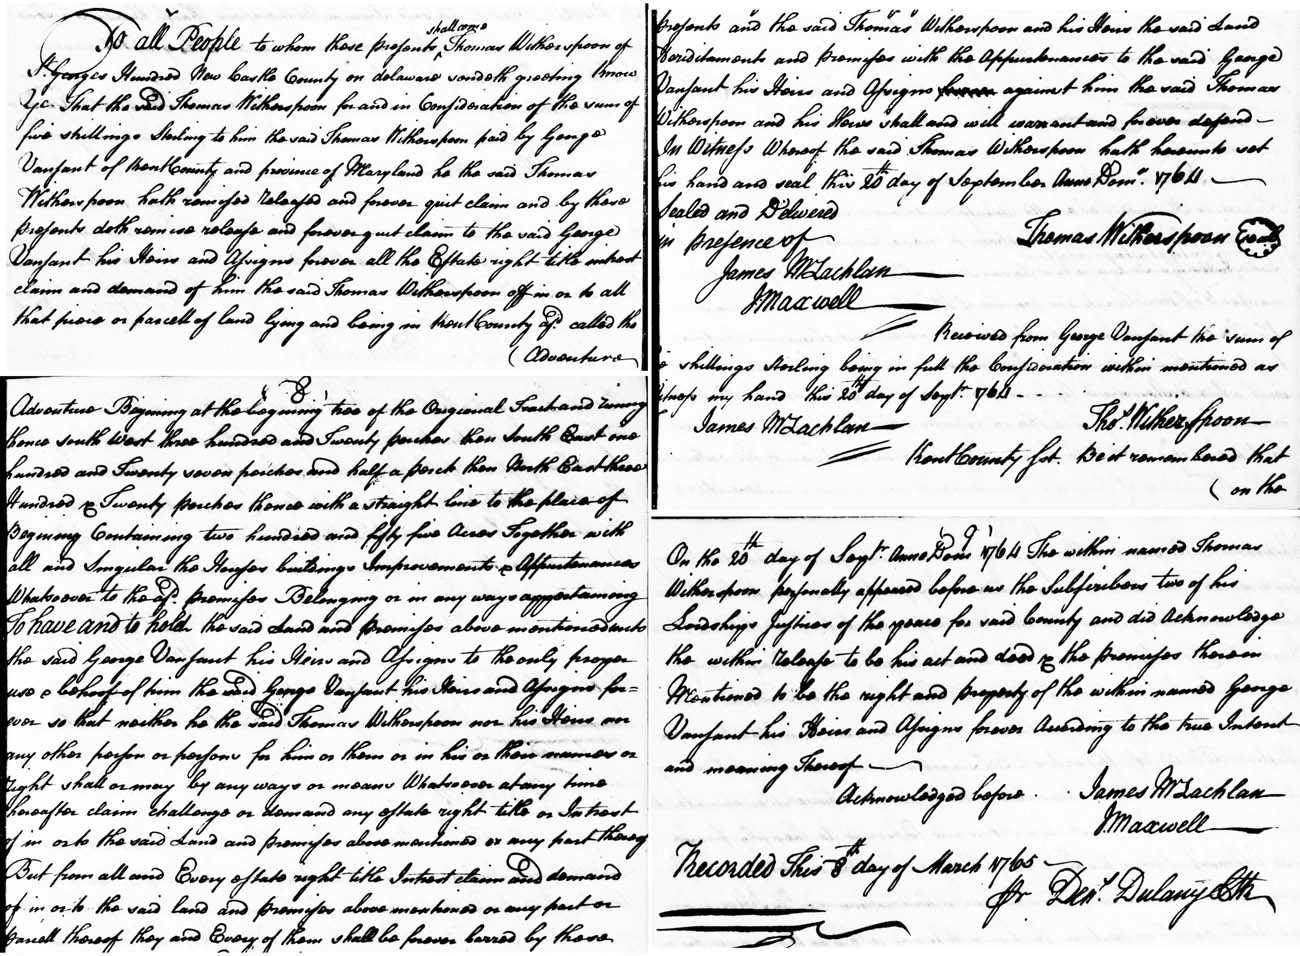 To all People to whom these presents shall come Thomas Witherspoon of
St. Georges Hundred New Castle County on delaware sendeth greeting know
Ye That the said Thomas Witherspoon for and in Consideration of the sum of
five shillings Sterling to him the said Thomas Witherspoon paid by George
Vansant of Kent County and province of Maryland he the said Thomas
Witherspoon hath remised released and forever quit claim and by these
presents doth remise release and forever quit claim to the said George
Vansant his Heirs and Assigns forever all the Estate right title intrest
claim and demand of him the said Thomas Witherspoon off in or to all
that piece or parcell of land lying and being in Kent County afd. called the
(Adventure
8
Adventure Begining at the begining tree of the Origional Tract and runing
thence south West three hundred and Twenty perches then South East one
hundred and Twenty seven perches and half a perch then North East three
Hundred & Twenty perches thence with a straight line to the place of
Begining Containing two hundred and fifty five Acres Together with
all and Singular the Houses buildings Improvements & Appurtenances
Whatsoever to the afd. premises Belonging or in any ways appertaining
To have and to hold the said Land and premises above mentioned unto
the said George Vansant his Heirs and Assigns to the only proper
use & behoof of him the said George Vansant his Heirs and Assigns for=
ever so that neither he the said Thomas Witherspoon nor his Heirs nor
any other person or persons for him or them or in his or their names or
right shall or may by any ways or means Whatsoever at any time
hereafter claim challenge or demand any estate right title or Intrest
of in or to the said Land and premises above mentioned or any part thereof
But from all and Every estate right title Interest claim and demand
of in or to the said land and premises above mentioned or any part or
parcell thereof they and Every of them shall be forever barred by these
presents " and the said Thomas Witherspoon and his Heirs the said Land
Heriditaments and premises with the Appurtenances to the said George
Vansant his Heirs and Assigns against him the said Thomas
Witherspoon and his Heirs shall and will warrant and forever defend
In Witness Whereof the said Thomas Witherspoon hath hereunto set
his hand and seal this 20th day of September Anno Domo. 1764
Sealed and D'elivered
in presence of Thomas Witherspoon seal
James McLachlan
J Maxwell
Received from George Vansant the sum of
shillings sterling being in full the Consideration within mentioned as
itness my hand this 20th day of Sepr. 1764
James McLachlan Thos. Witherspoon
Kent County Sct. Be it remembered that
(on the
9
On the 20th day of Sepr. Anno Domi 1764 The within named Thomas
Witherspoon personally appeared before us the Subscribers two of his
Lordships Justices of the peace for said County and did Acknowledge
the within Release to be his act and deed & the premises therein
Mentioned to be the right and property of the within named George
Vansant his Heirs and Assigns forever According to the true Intent
and meaning Thereof
Acknowledged before James McLachlan
J Maxwell
Recorded This 8th day of March 1765
Pr Dens. Dulany Clk